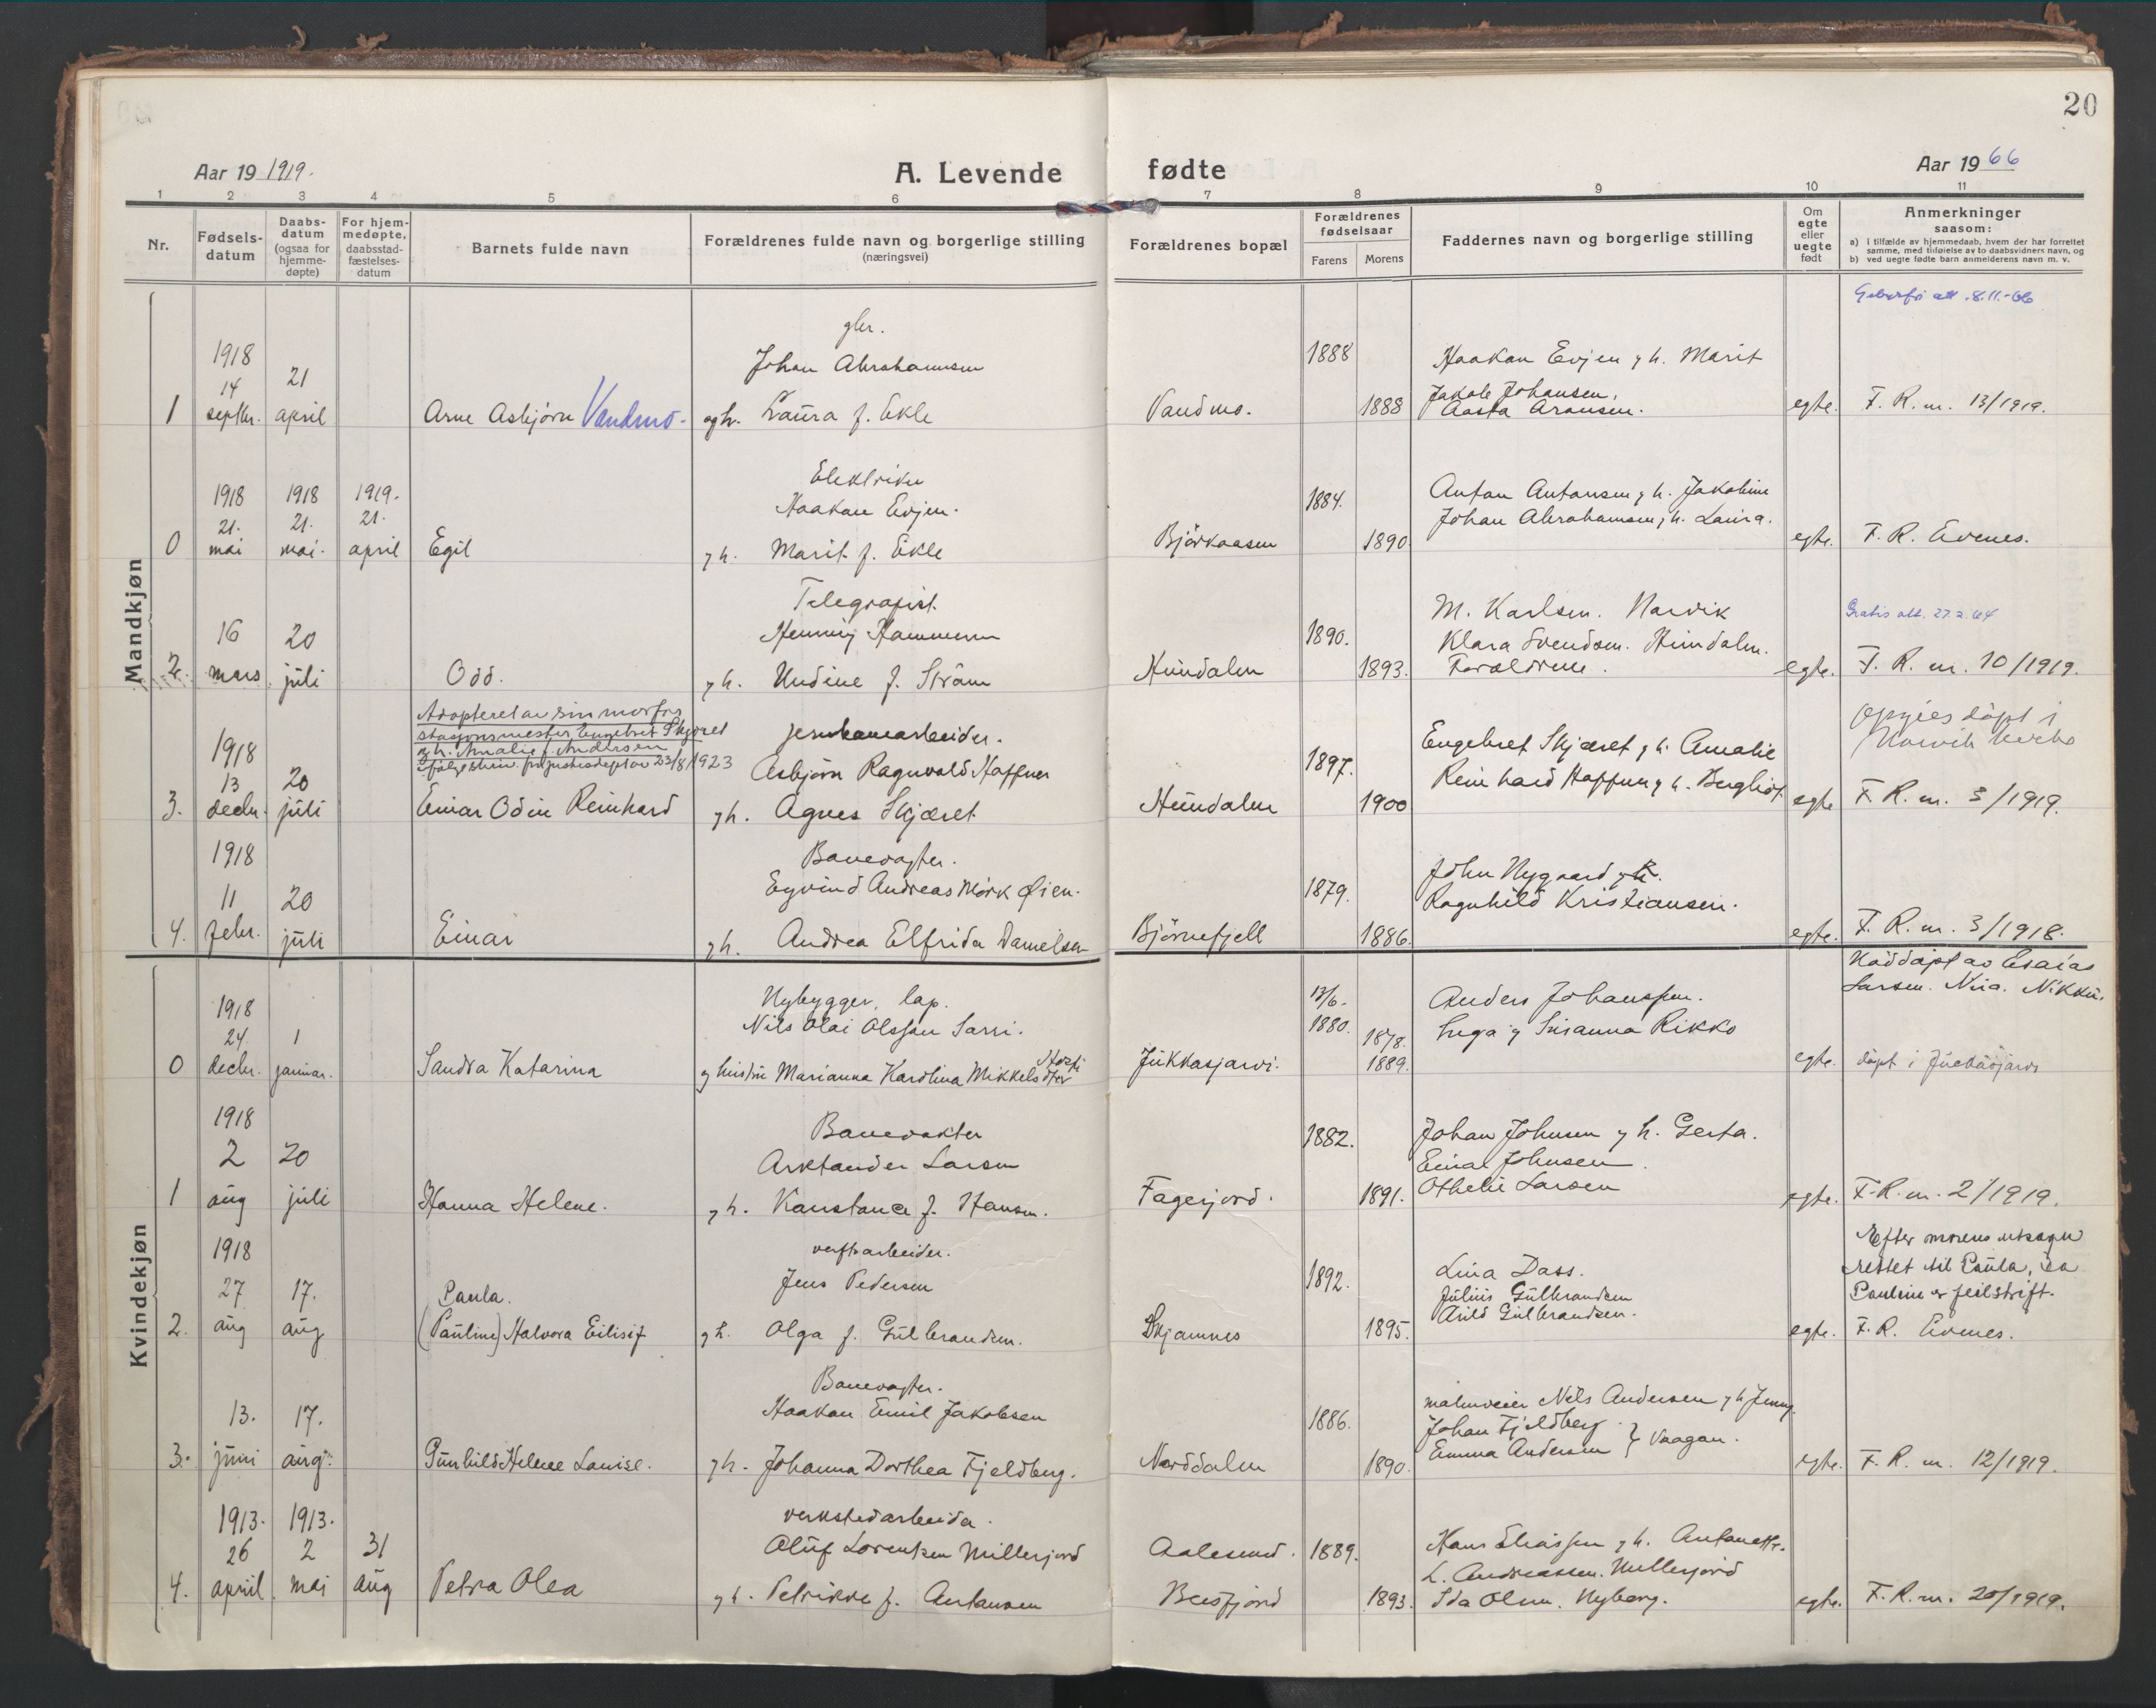 20
Aar 19 1919.
A. Levende fødte
Aar 19 66
1 2 3 4 5 6 7 8 9 10 11
Nr.
Fødsels-
datum
Daabs-
datum
(ogsaa for
hjemme-
døpte)
For hjem-
medøpte,
daabsstad-
fæstelses-
datum
Barnets fulde navn
Forældrenes fulde navn og borgerlige stilling
(næringsvei)
Forældrenes bopæl
Forældrenes
fødselsaar
Farens Morens
Faddernes navn og borgerlige stilling
Om
egte
eller
uegte
født
Anmerkninger
saasom:
a) i tilfælde av hjemmedaab, hvem der har forrettet
samme, med tilføielse av to daabsvidners navn, og
b) ved uegte fødte barn anmelderens navn m. v.
Mandkjøn
att. 8.11.-66
gbr.
1918 21 Johan Abrahamsen 1888 Haakon Evjen g h. Marit
14 Jakob Johansen,
1 septbr. april Arne Asbjørn Vandmo - og h. Laura f. Ekle Vandmo. 1888 Aasta Aronsen. egte. F. R. m. 13/1919.
Elektriker
1918 1918 1919. Haakon Evjen. 1884. Anton Antonsen g h. Jakobine
21. 21. 21. Johan Abrahamsen g h. Laura.
0 mai mai. april Egil g h. Marit f. Ekle Björkaasen 1890 egte. F. R. Evenes.
Telegrafist. M. Karlsen. Narvik Gratis att. 27.2.64
16 20 Henning Hammeren 1890. Klara Svendsen. Hundalen.
2. mars juli Odd. g h. Undine f. Ström Hundalen 1893. Forældrene. egte. F. R. m. 10/1919.
Adopteret av sin morfar
stasjonsmester Engebret Skjæret
og h. Amalie f. Andersen
ifølge skriv. fra justisdept av 23/8 1923
Opgies døpt i
Narvik kirke
1918 jernbanearbeider. Engebret Skjæret g h. Amalie
13 20 Asbjörn Ragnvald Haffner 1897. Reinhard Haffner g h. Bergliot.
3. decbr. juli Einar Odin Reinhard g h. Agnes Skjæret Hundalen 1900 egte F. R. m. 5/1919.
1918 Banevogter. John Nygaard g h.
11 20 Eyvind Andreas Mörk Øien. 1879. Ragnhild Kristiansen.
4. febr. juli Einar g h. Andrea Elfrida Danielsen Björnefjell 1886. egte. F. R. m. 3/1918.
Kvindekjøn
Nöddøpt av Esaias
Larsen. Nikku.
1918 Nybygger, lap. 13/6- Anders Johanssen.
24 1 Nils Olai Olssen Sarri. 1880. 1878. Inga g Susanna Rikko
0 decbr. januar. Sandra Katarina g hustru Marianna Karolina Mikkelsdtr Jukkasjarvi. 1889. egte. døpt i Juckasjarvi
1918 Banevakter Johan Johnsen g h. Gerta.
2 20 Arktander Larsen 1882. Einar Johnsen.
1 aug juli Hanna Helene. g h. Konstance f. Hansen. Fagerjord. 1891. Othelie Larsen egte. F. R. m. 2/1919.
Efter morens utsagn
rettet til Paula, da
Pauline er feilskrift.
1918 verftsarbeider. Lina Dass.
27 17. Paula. Jens Pedersen 1892. Julius Gulbrandsen
2. aug aug (Pauline) Halvora Eilisif g h. Olga f. Gulbrandsen. Skjomnes 1895. Arild Gulbrandsen. egte. F. R. Evenes.
Banevogter. malmveier Nils Andersen g h Jenny.
13. 17. Haakon Emil Jakobsen 1886. Johan Fjeldberg
3. juni aug. Gunhild Helene Louise. g h. Johanna Dorthea Fjeldberg. Norddalen 1890. Emma Andersen } Vaagan. egte. F. R. m. 12/1919.
1913. 1913. verkstedarbeider.
26 2 31 Oluf Lorentzen Millerjord Aalesund. 1889. Hans Eliassen g h. Antonette.
L. Andreassen. Millerjord
4. april. mai aug Petra Olea g h. Petrikke f. Antonsen Beisfjord 1893. Ida Olsen. Nyborg. egte. F. R. m. 20/1919.